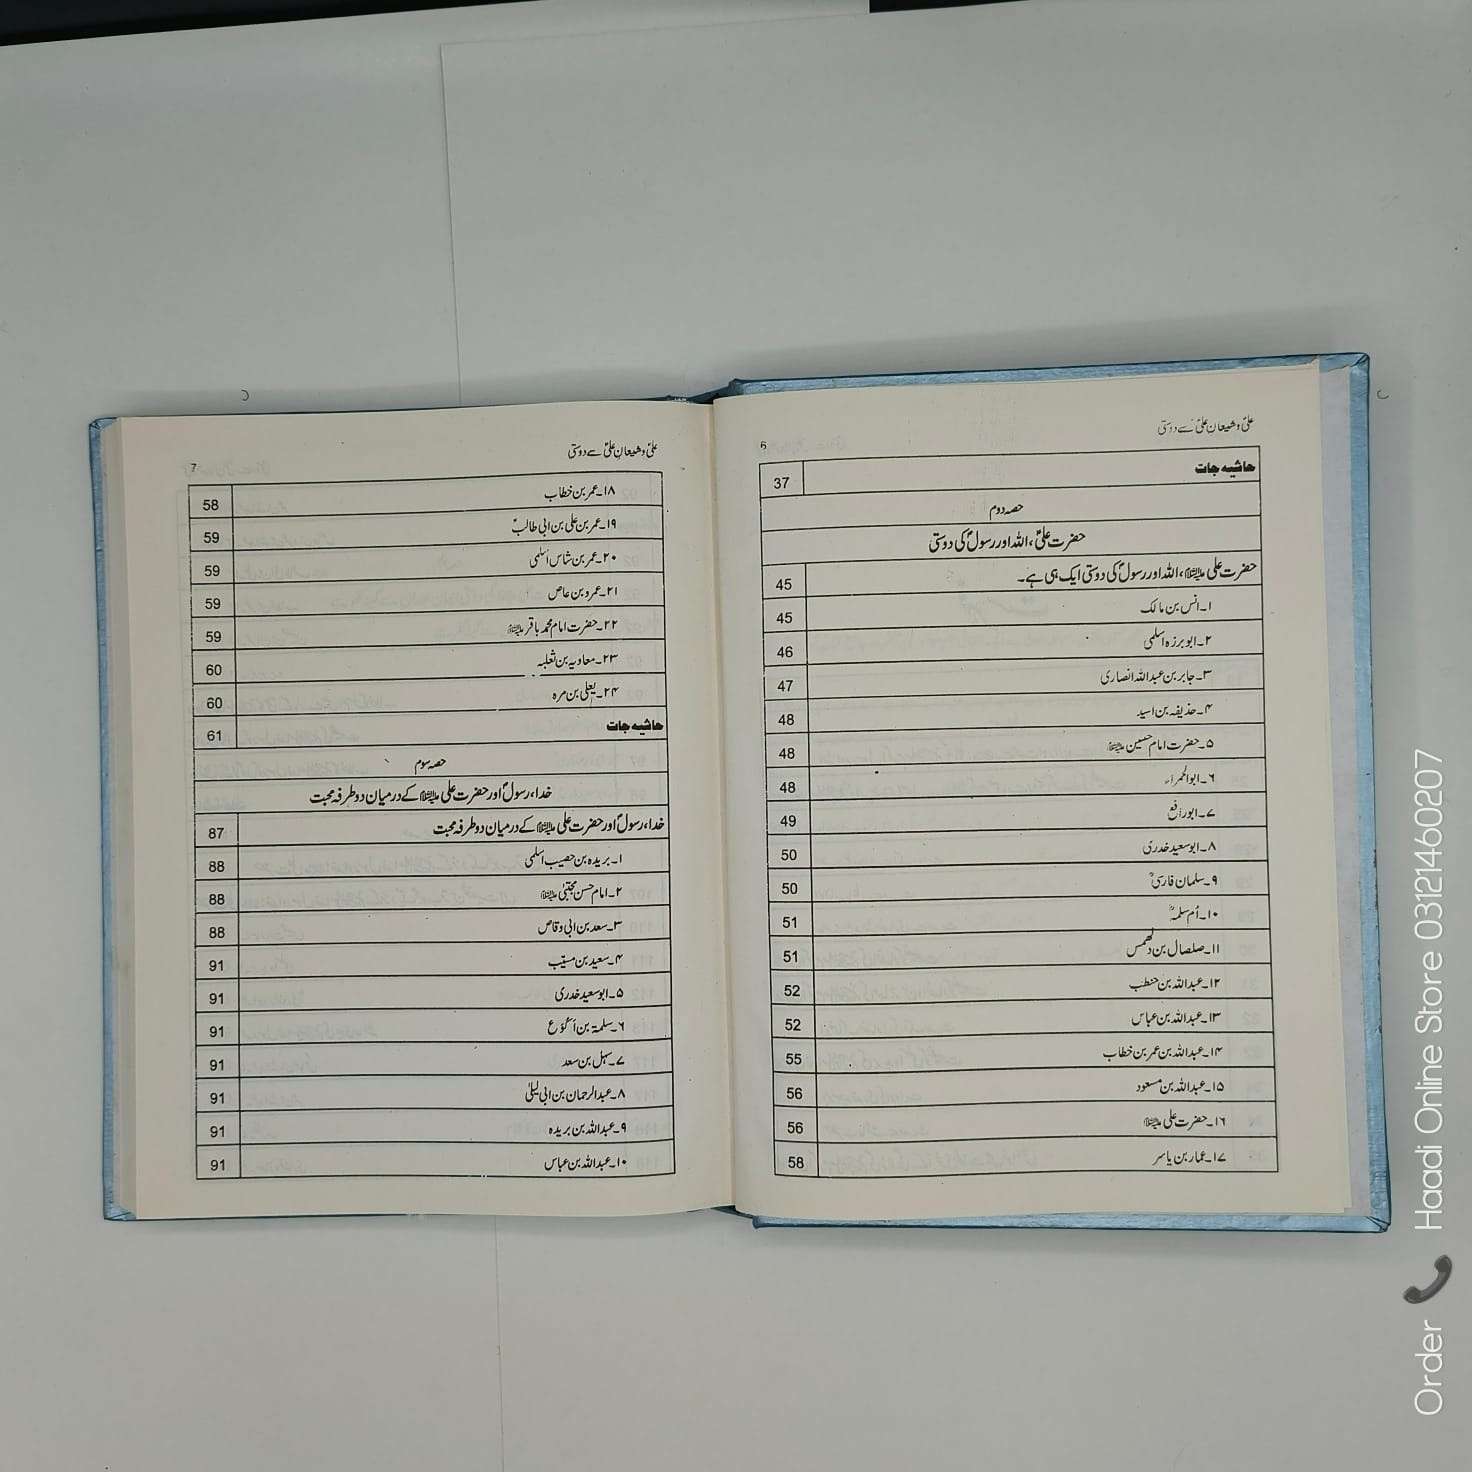 6
علیؑ و شیعان علیؑ سے دوستی
حاشیہ جات 37
حصہ دوم
حضرت علیؑ، اللہ اور رسولؐ کی دوستی
حضرت علی علیہ السلام، اللہ اور رسولؐ کی دوستی ایک ہی ہے۔ 45
۱۔ انس بن مالک 45
۲۔ ابو برزہ اسلمی 46
۳۔ جابر بن عبداللہ انصاری 47
۴۔ حذیفہ بن اسید 48
۵۔ حضرت امام حسین علیہ السلام 48
۶۔ ابوالحمراء 48
۷۔ ابورافع 49
۸۔ ابوسعید خدری 50
۹۔ سلمان فارسیؓ 50
۱۰۔ اُم سلمہؓ 51
۱۱۔ صلصال بن دلھمس 51
۱۲۔ عبداللہ بن حنطب 52
۱۳۔ عبداللہ بن عباس 52
۱۴۔ عبداللہ بن عمر بن خطاب 55
۱۵۔ عبداللہ بن مسعود 56
۱۶۔ حضرت علی علیہ السلام 56
۱۷۔ عمار بن یاسر 58
7
علیؑ و شیعان علیؑ سے دوستی
۱۸۔ عمر بن خطاب 58
۱۹۔ عمر بن علی بن ابی طالبؑ 59
۲۰۔ عمر بن شاس اسلمی 59
۲۱۔ عمرو بن عاص 59
۲۲۔ حضرت امام محمد باقر علیہ السلام 59
۲۳۔ معاویہ بن ثعلبہ 60
۲۴۔ یعلی بن مرہ 60
حاشیہ جات 61
حصہ سوم
خدا، رسولؐ اور حضرت علی علیہ السلام کے درمیان دو طرفہ محبت
خدا، رسولؐ اور حضرت علی علیہ السلام کے درمیان دو طرفہ محبت 87
۱۔ بریدہ بن حصیب اسلمی 88
۲۔ امام حسن مجتبیٰ علیہ السلام 88
۳۔ سعد بن ابی وقاص 88
۴۔ سعید بن مسیّب 91
۵۔ ابوسعید خدری 91
۶۔ سلمۃ بن اکوع 91
۷۔ سہل بن سعد 91
۸۔ عبدالرحمان بن ابی لیلیٰ 91
۹۔ عبداللہ بن بریدہ 91
۱۰۔ عبداللہ بن عباس 91
Order 📞 Haadi Online Store 03121460207